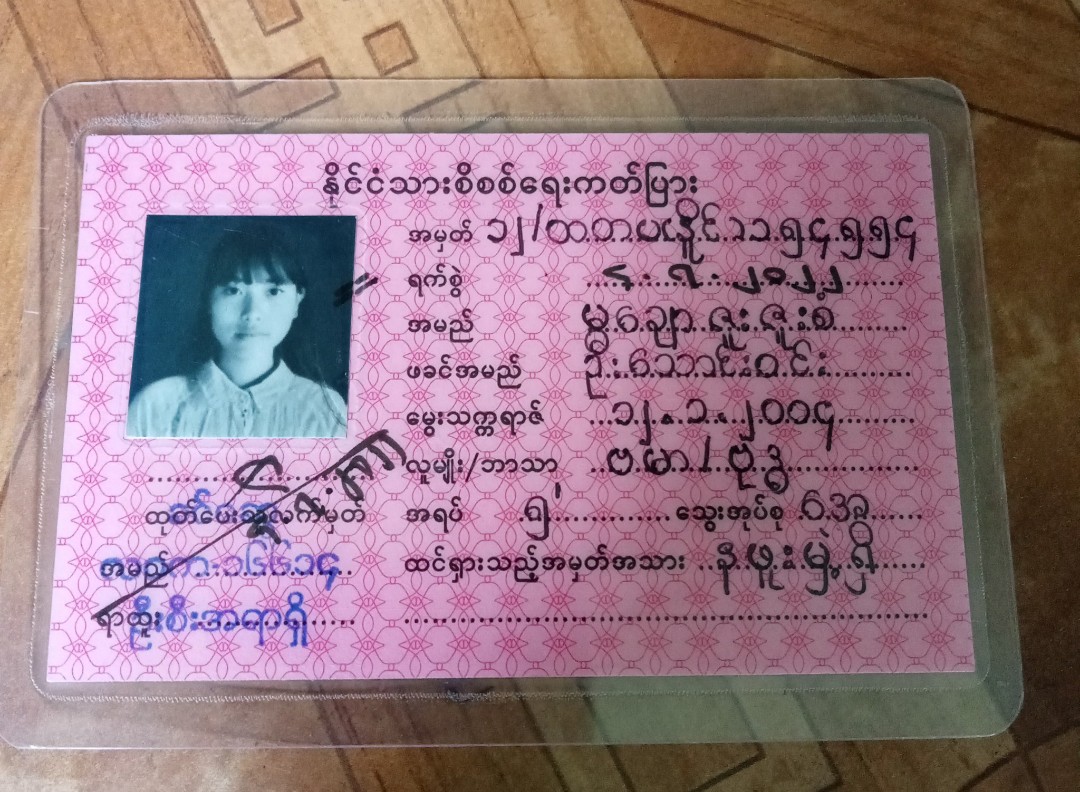 နိုင်ငံသားစိစစ်ရေးကတ်ပြား
အမှတ် ၁၂/တတပ(နိုင်)
ရက်စွဲ ၂၀၂၂
အမည် မွန်ချောဇူးဇူးစ
ဖခင်အမည် ဦးသောင်းဝင်း
မွေးသက္ကရာဇ် ၁၂.၁.၂၀၀၄
လူမျိုး/ဘာသာ ဗမာ/ဗုဒ္ဓ
အရပ် ၅' သွေးအုပ်စု အေ
ထင်ရှားသည့်အမှတ်အသား နဖူးမှဲ့ရှိ
ထုတ်ပေးသူလက်မှတ်
အမည်
ရာထူး ဦးစီးအရာရှိ